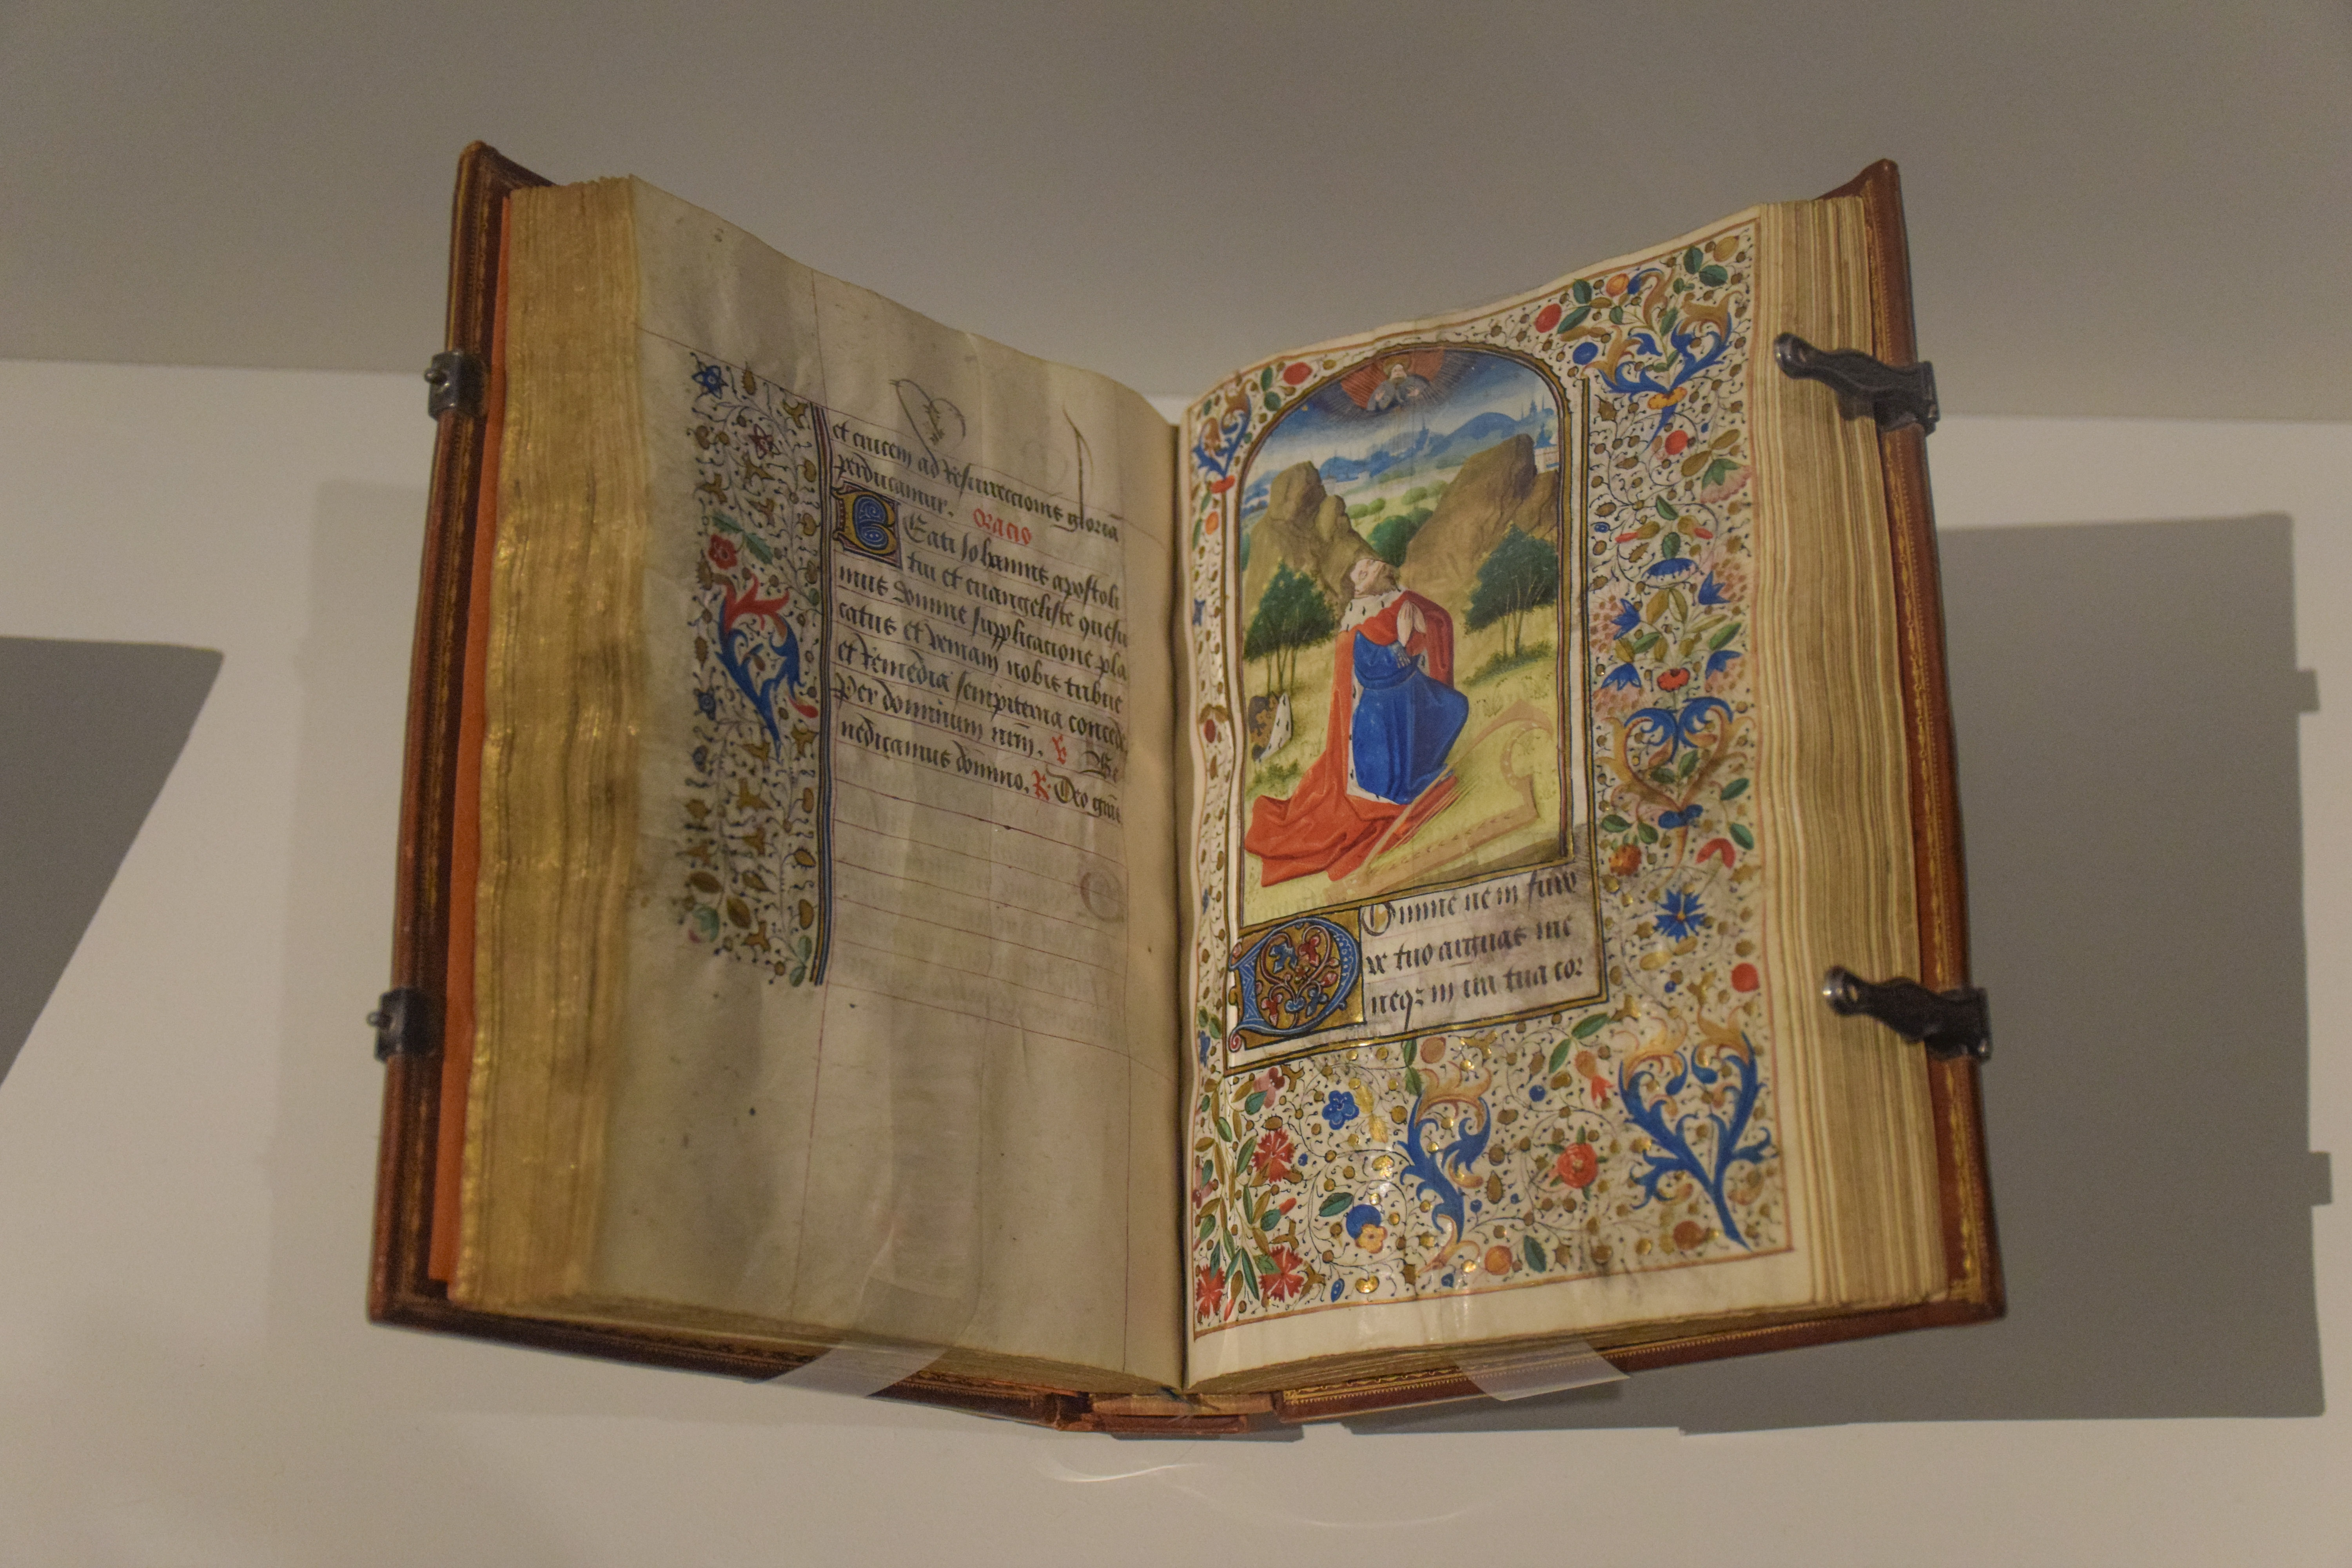 et crucem ad resurrectionis gloria
perducamur. Oracio
Beati Johannis apostoli
tui et euangeliste quesu
mus domine supplicatione pla
catus et veniam nobis tribue
et remedia sempiterna concede
Per dominum nrm. V Be
nedicamus domino. R Deo gras
Domine ne in furo
re tuo arguas me
neqz in ira tua cor